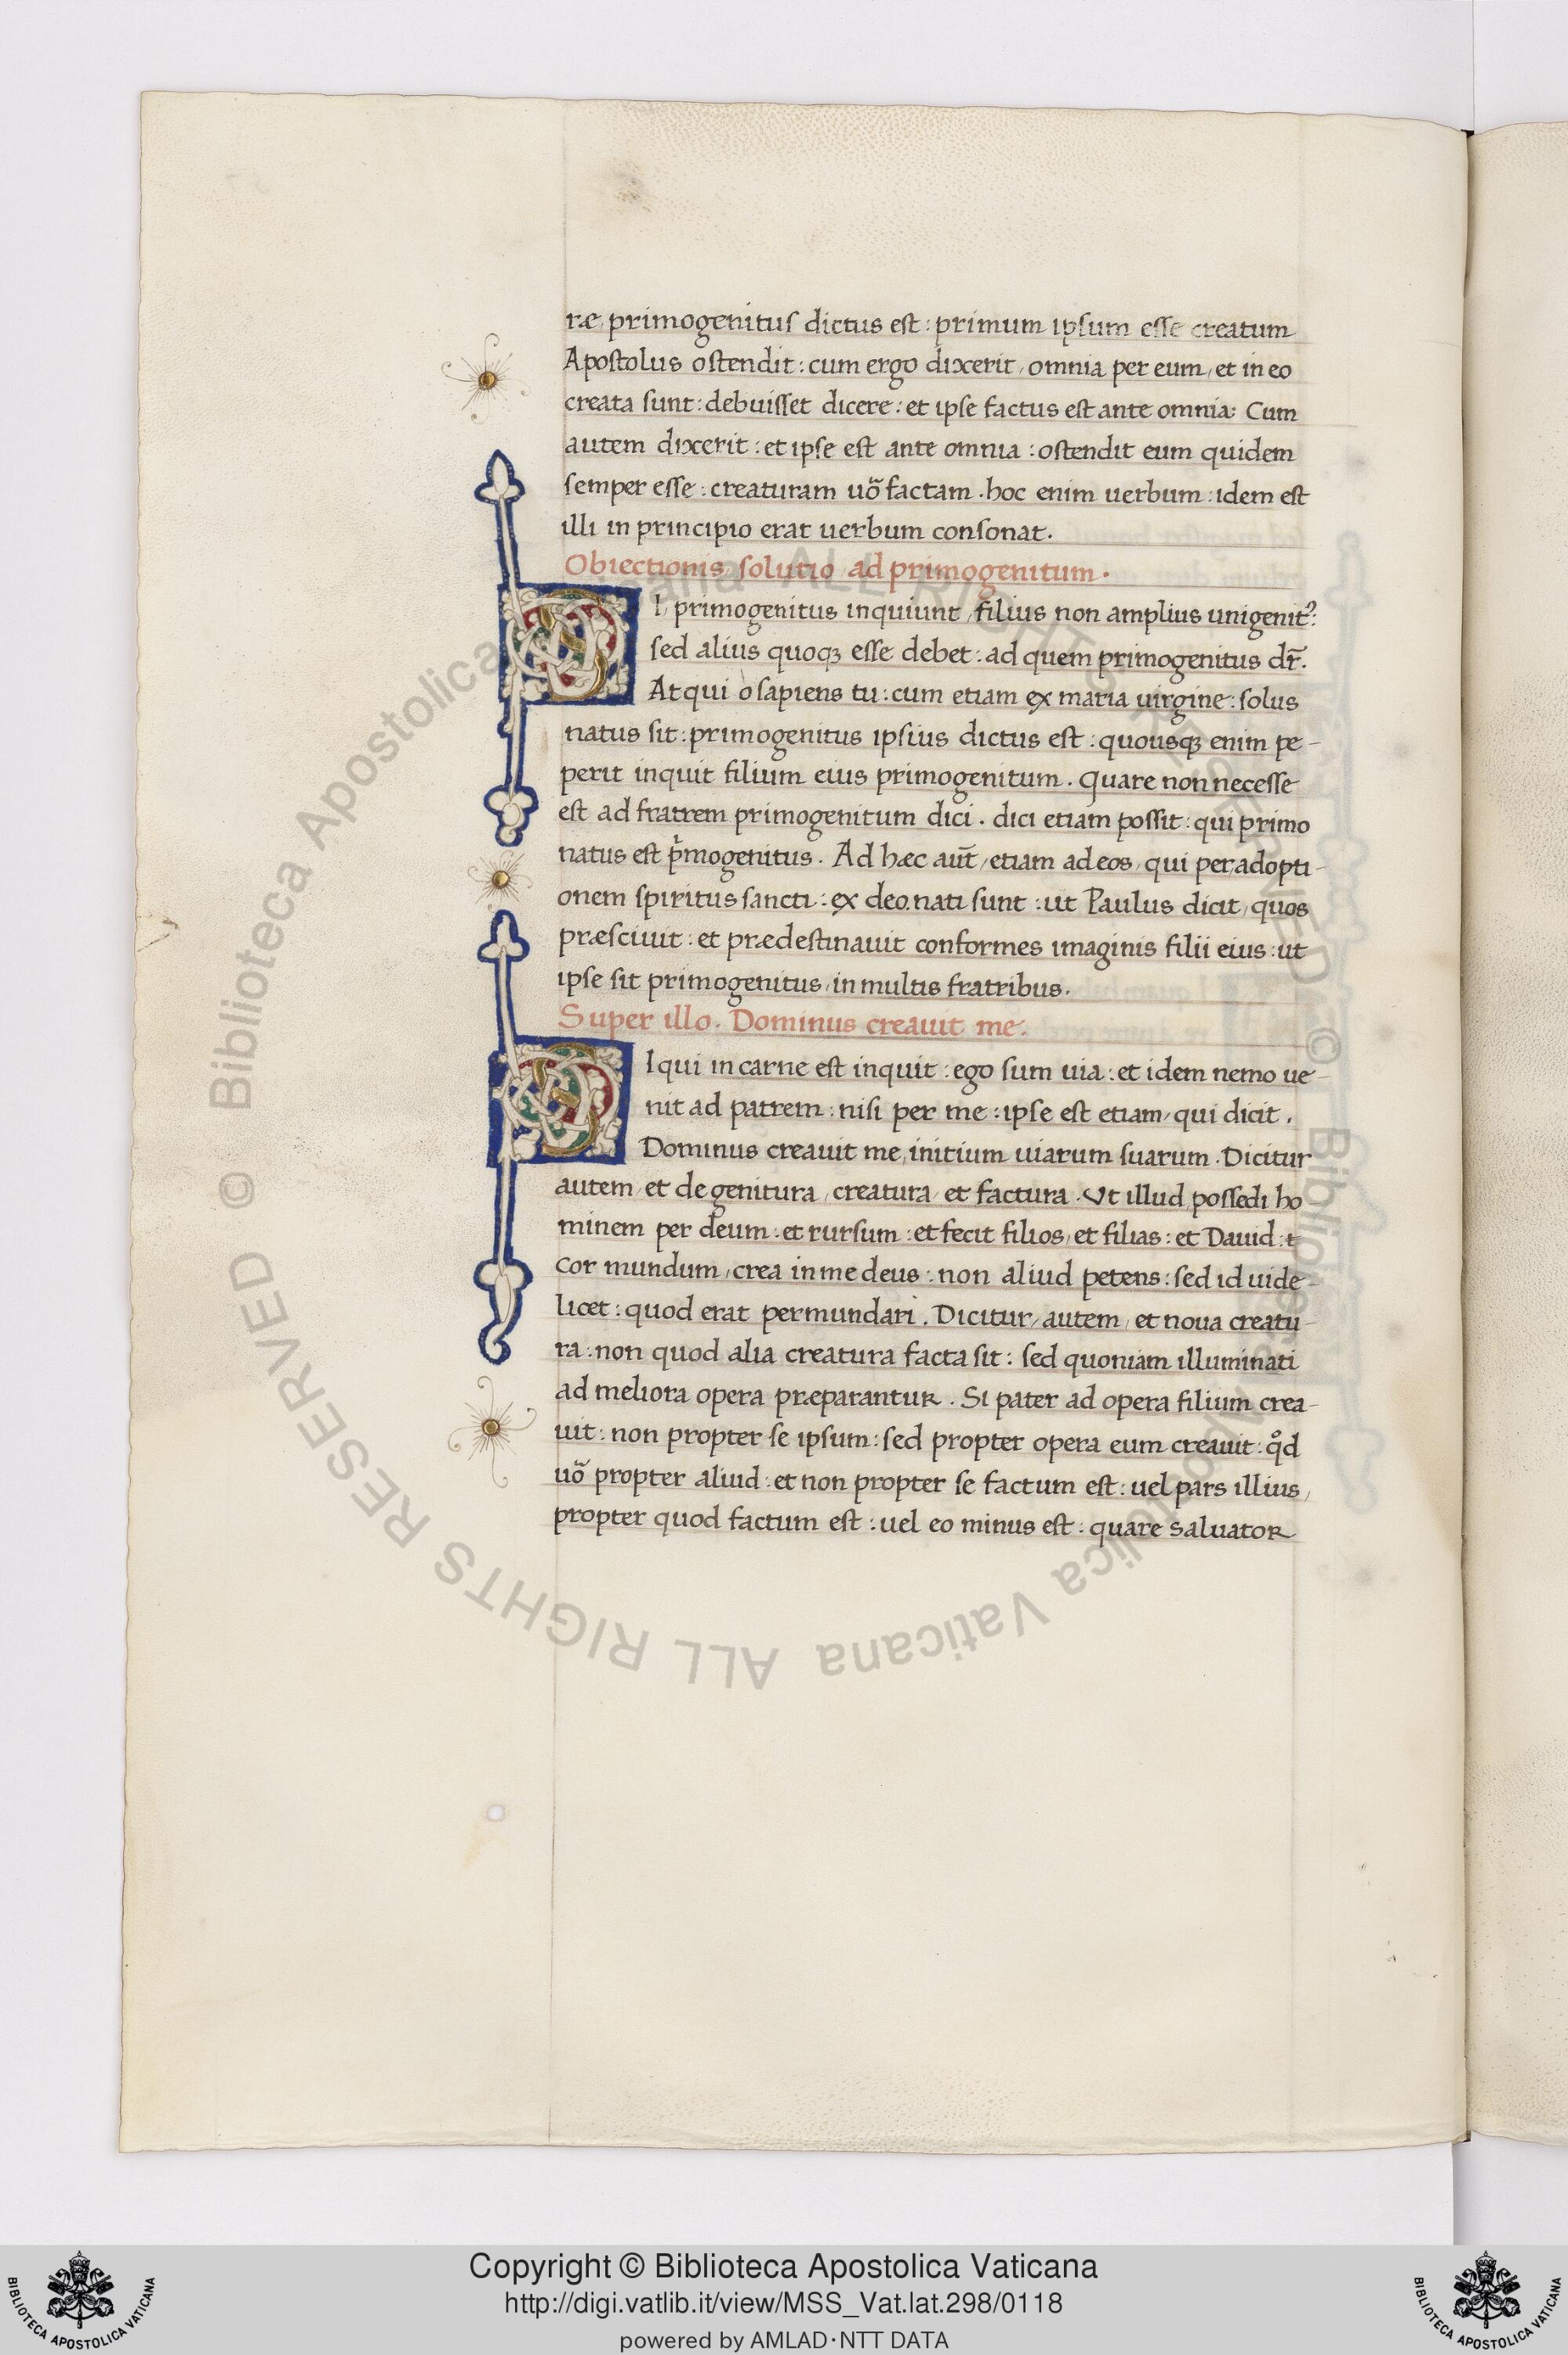 ræ, primogenitus dictus est : primum ipsum esse creatum
Apostolus ostendit : cum ergo dixerit, omnia per eum, et in eo
creata sunt : debuisset dicere : et ipse factus est ante omnia : Cum
autem dixerit : et ipse est ante omnia : ostendit eum quidem
semper esse : creaturam uõ factam . hoc enim uerbum : idem est
illi in principio erat uerbum consonat .
Obiectionis, solutio, ad primogenitum .
SI, primogenitus inquiunt, filius non amplius unigenitꝰ:
sed alius quoqꝫ esse debet : ad quem primogenitus dr̄.
Atqui o sapiens tu : cum etiam ex maria uirgine : solus
natus sit : primogenitus ipsius dictus est : quousqꝫ enim pe-
perit inquit filium eius primogenitum . Quare non necesse
est ad fratrem primogenitum dici . dici etiam possit : qui primo
natus est pͥmogenitus . Ad hæc aut̄, etiam ad eos, qui per adopti-
onem spiritus sancti : ex deo nati sunt : ut Paulus dicit, quos
præsciuit : et prædestinauit conformes imaginis filii eius : ut
ipse sit primogenitus, in multis fratribus .
Super illo . Dominus creauit me .
SI qui in carne est inquit : ego sum uia : et idem nemo ue-
nit ad patrem : nisi per me : ipse est etiam, qui dicit .
Dominus creauit me, initium uiarum suarum . Dicitur
autem, et de genitura, creatura, et factura . Ut illud, possedi ho
minem per deum : et rursum : et fecit filios, et filias : et Dauid :
cor mundum, crea in me deus : non aliud petens : sed id uide-
licet : quod erat permundari . Dicitur, autem, et noua creatu-
ra : non quod alia creatura facta sit : sed quoniam illuminati
ad meliora opera præparantur . Si pater ad opera filium crea-
uit : non propter se ipsum : sed propter opera eum creauit : qͦd
uõ propter aliud : et non propter se factum est : uel pars illius,
propter quod factum est : uel eo minus est : quare saluator
© Biblioteca Apostolica Vaticana ALL RIGHTS RESERVED © Biblioteca Apostolica Vaticana ALL RIGHTS RESERVED
Copyright © Biblioteca Apostolica Vaticana
http://digi.vatlib.it/view/MSS_Vat.lat.298/0118
powered by AMLAD·NTT DATA
BIBLIOTECA APOSTOLICA VATICANA
BIBLIOTECA APOSTOLICA VATICANA